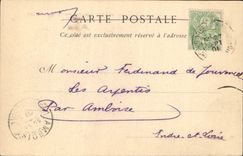 CARTE POSTALE
Ce côté est exclusivement réservé à l'adresse
Monsieur Ferdinand de
Les Arpentis
par Amboise
Indre-et-Loire